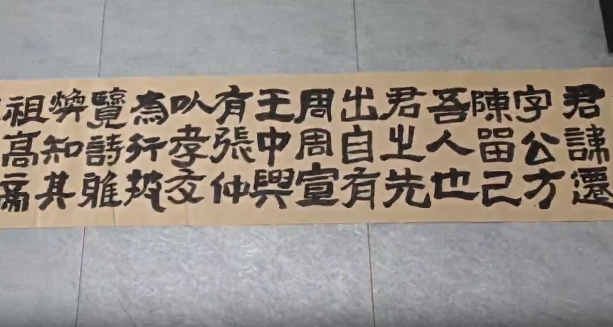 君諱遷
字公方
陳留己
吾人也
君之先
出自有
周周宣
王中興
有張仲
以孝友
為行披
覽詩雅
煥知其
祖高帝